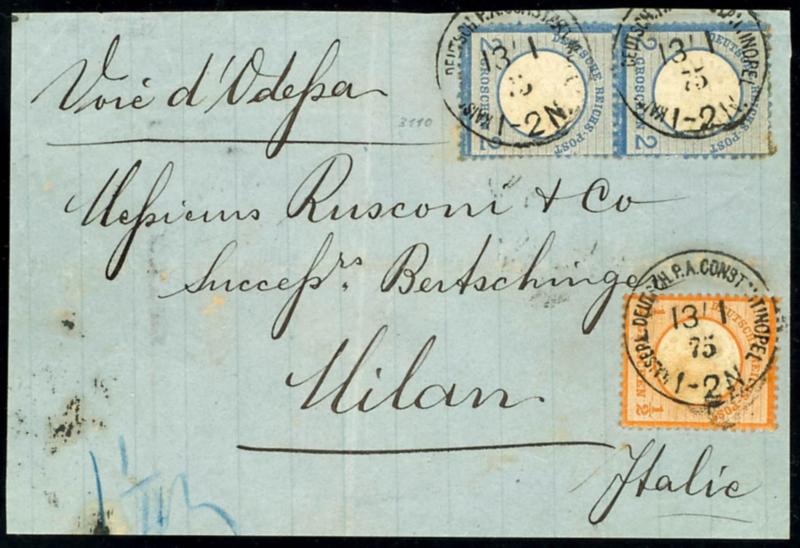 Voie d'Odessa
3110
Messieurs Rusconi & Co
Success.rs Bertschinger
Milan
Italie
DEUTSCHE REICHS-POST
2 GROSCHEN 2
DEUTSCHE REICHS-POST
2 GROSCHEN 2
KAISERL. DEUTSCH. P.A. CONSTANTINOPEL
13 1
75
1-2N.
KAISERL. DEUTSCH. P.A. CONSTANTINOPEL
13 1
75
1-2N.
KAISERL. DEUTSCH. P.A. CONSTANTINOPEL
13 1
75
1-2N.
DEUTSCHE REICHS-POST